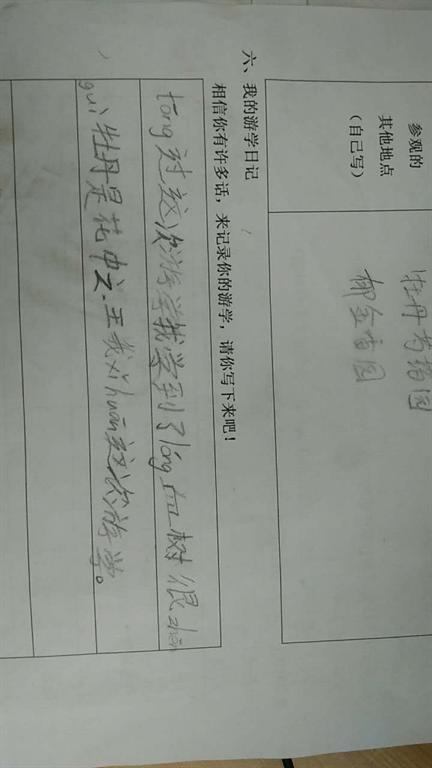 参观的
其他地点
（自己写）
牡丹芍药园
郁金香园
六、我的游学日记
相信你有许多话，来记录你的游学，请你写下来吧！
tōng过这次游学我学到了lóng血树很zhēn
guì牡丹是花中之王我xǐhuan这次游学。